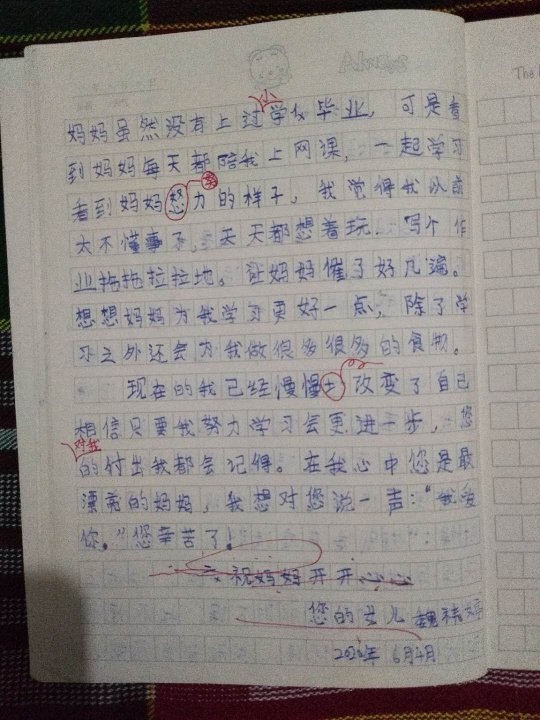 妈妈虽然没有上过小学仪毕业，可是看
到妈妈每天都陪我上网课，一起学习
看到妈妈怒力的样子，我觉得我以前
太不懂事了，天天都想着玩。写个作
业拖拖拉拉地。让妈妈催了好几遍。
想想妈妈为我学习更好一点，除了学
习之外还会为我做很多很多的食物。
现在的我已经慢慢土改变了自己
相信只要我努力学习会更进一步，您
对我
的付出我都会记得。在我心中您是最
漂亮的妈妈，我想对您说一声：“我爱
你。”您辛苦了！
祝妈妈开开心心
您的女儿
6月4日